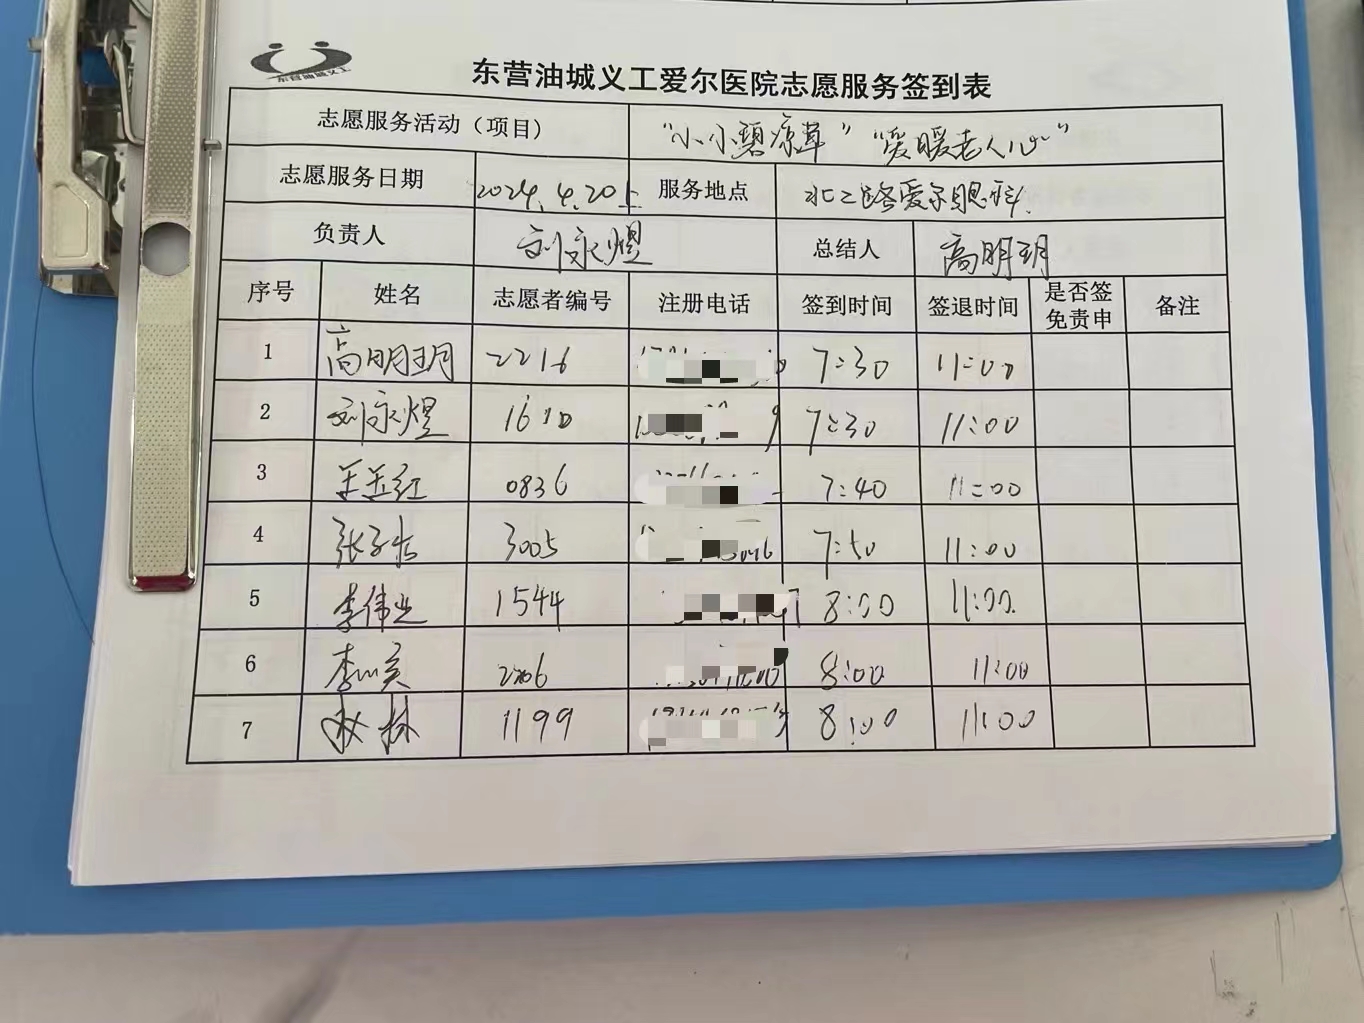 东营油城义工
东营油城义工爱尔医院志愿服务签到表
志愿服务活动（项目） “小小碧凉草”“爱暖老人心”
志愿服务日期 2024.4.20上 服务地点 北二路爱尔眼科
负责人 刘永煜 总结人 高明玥
序号 姓名 志愿者编号 注册电话 签到时间 签退时间 是否签免责申 备注
1 高明玥 2216 7:30 11:00
2 刘永煜 1610 7:30 11:00
3 王玉红 0836 7:40 11:00
4 张子 3005 7:50 11:00
5 李伟 1544 8:00 11:00
6 李 2206 8:00 11:00
7 林 1199 8:00 11:00